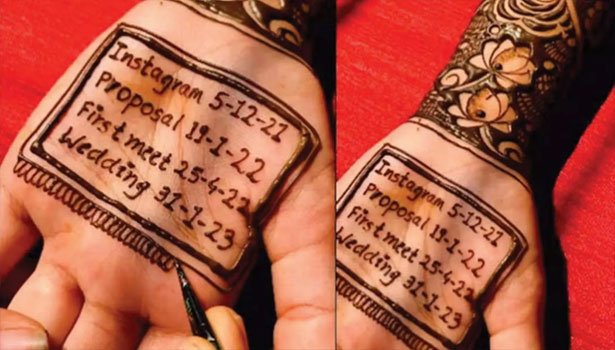 Instagram 5-12-21
Proposal 19-1-22
First meet 25-4-22
Wedding 31-1-23
Instagram 5-12-21
Proposal 19-1-22
First meet 25-4-22
Wedding 31-1-23